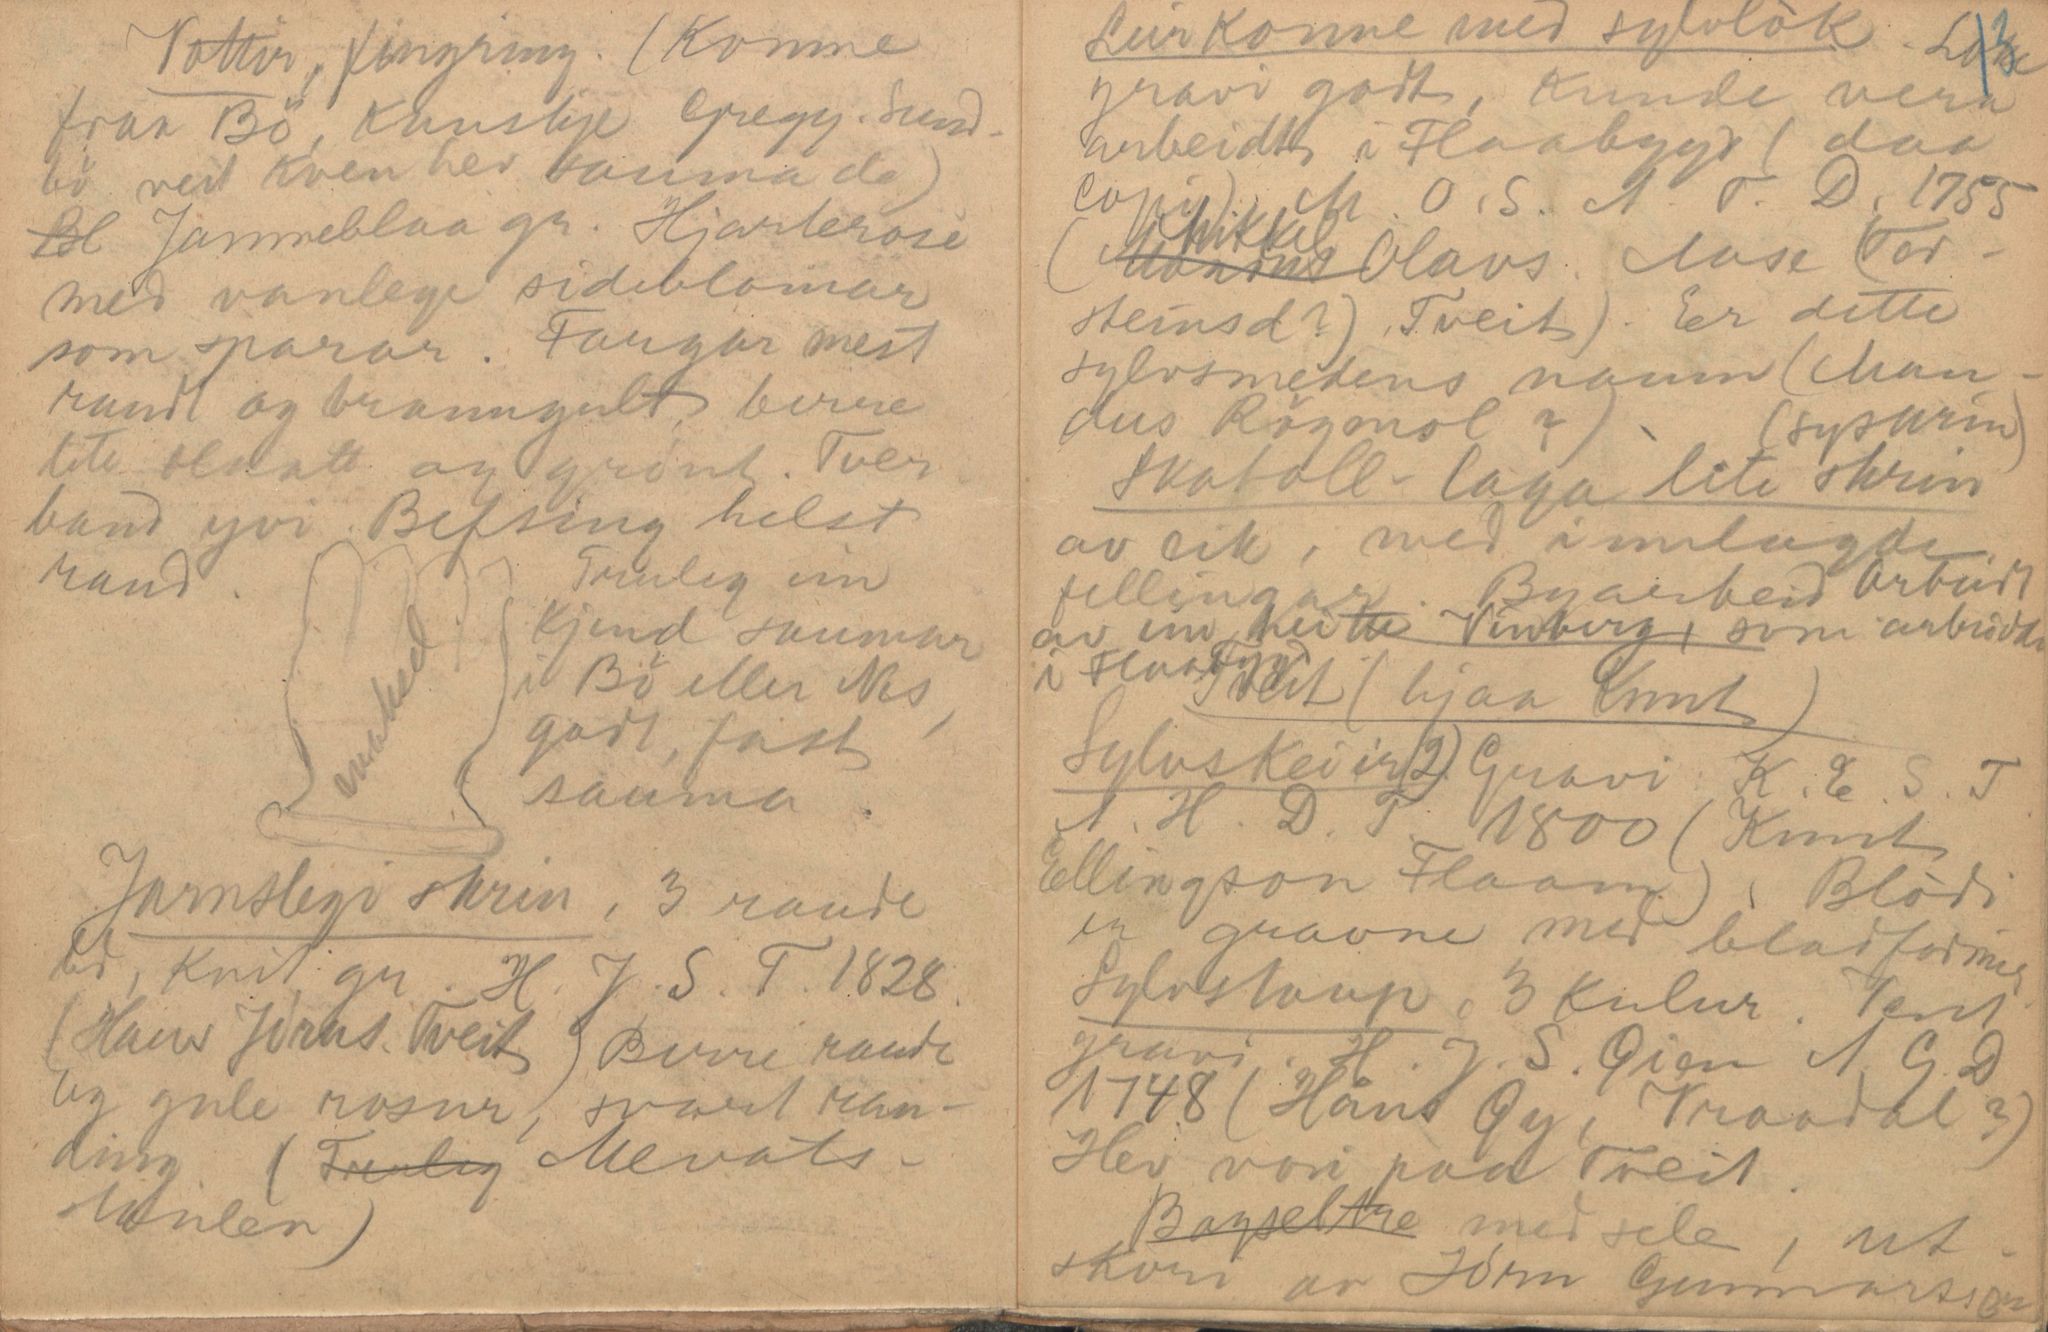 Vottir, fingring. (Komne
fraa Bö, Kanskje Gregg. Sund-
bö veit kven hev sauma de)
Jamneblaa gr. Hjarterose
med vanlege sideblomar
som sparar. Fargar mest
raudt og branngult, berre
lite blaatt og grönt. Tver
band yvi. Befsing helst
raud.
Truleg ein
kjend saumar
i Bö eller Nes,
godt, fast
sauma.
Jarnslegi skrin, 3 raude
bd, kvit gr. H. J. S. T. 1828.
(Hans Jörns. Tveit) Berre raude
og gule rosur, svart ran-
ding (Truleg Mevats-
stoilen)
13
Leirkonne med sylvlök. Loke
gravi godt, Kunde vera
arbeidt i Flaabygd (daa
copi) M. O. S. A. T. D. 1755
(Mikkel Olavs. Aase (Tor-
steinsd?) Tveit). Er dette
sylvsmedens namn (Man-
dus Rögmol?)
(syskrin)
Skatoll-laga lite skrin
av eik, med innlagde
fellingar. Byarbeid Arbeidt
av ein heitte Vinberg, som arbeidde
i Flaabygd
Tveit (hjaa Knut)
Sylvskeier (2) Gravi K. E. S. T
A. H. D. T. 1800 (Knut
Ellingson Flaam), Blödi
er gravne med bladforing
Sylvstaup, 3 Kulur. Tent
gravi. H. J. S. Qien A. G. D
1748 (Hans Qy, Vraadal?)
Hev vori paa Tveit.
Bogseltre med sele, ut-
skori av Jörn Gunnarson